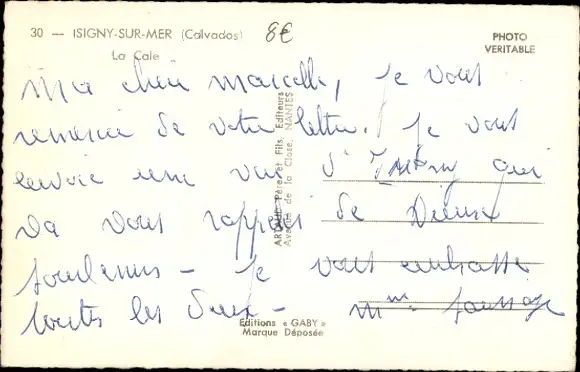 30 — ISIGNY-SUR-MER (Calvados) 8€
La Cale
PHOTO
VERITABLE
Ma chère Marcelle, Je vous
remercie de votre lettre. Je vous
envoie une vue d'Isigny qui
va vous rappeler de vieux
souvenirs – Je vous embrasse
toutes les deux – Mme
ARTAUD Père et Fils, Editeurs
Avenue de la Close, NANTES
Editions « GABY »
Marque Déposée